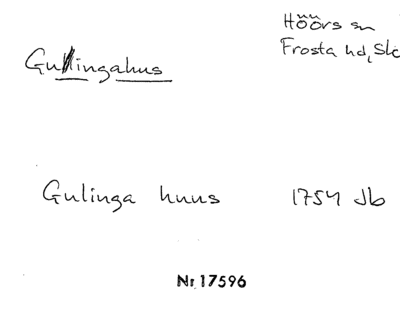 Höörs sn
Gullingahus
Frosta hd, Sk
Gulinga huus 1754 Jb
Nr 17596